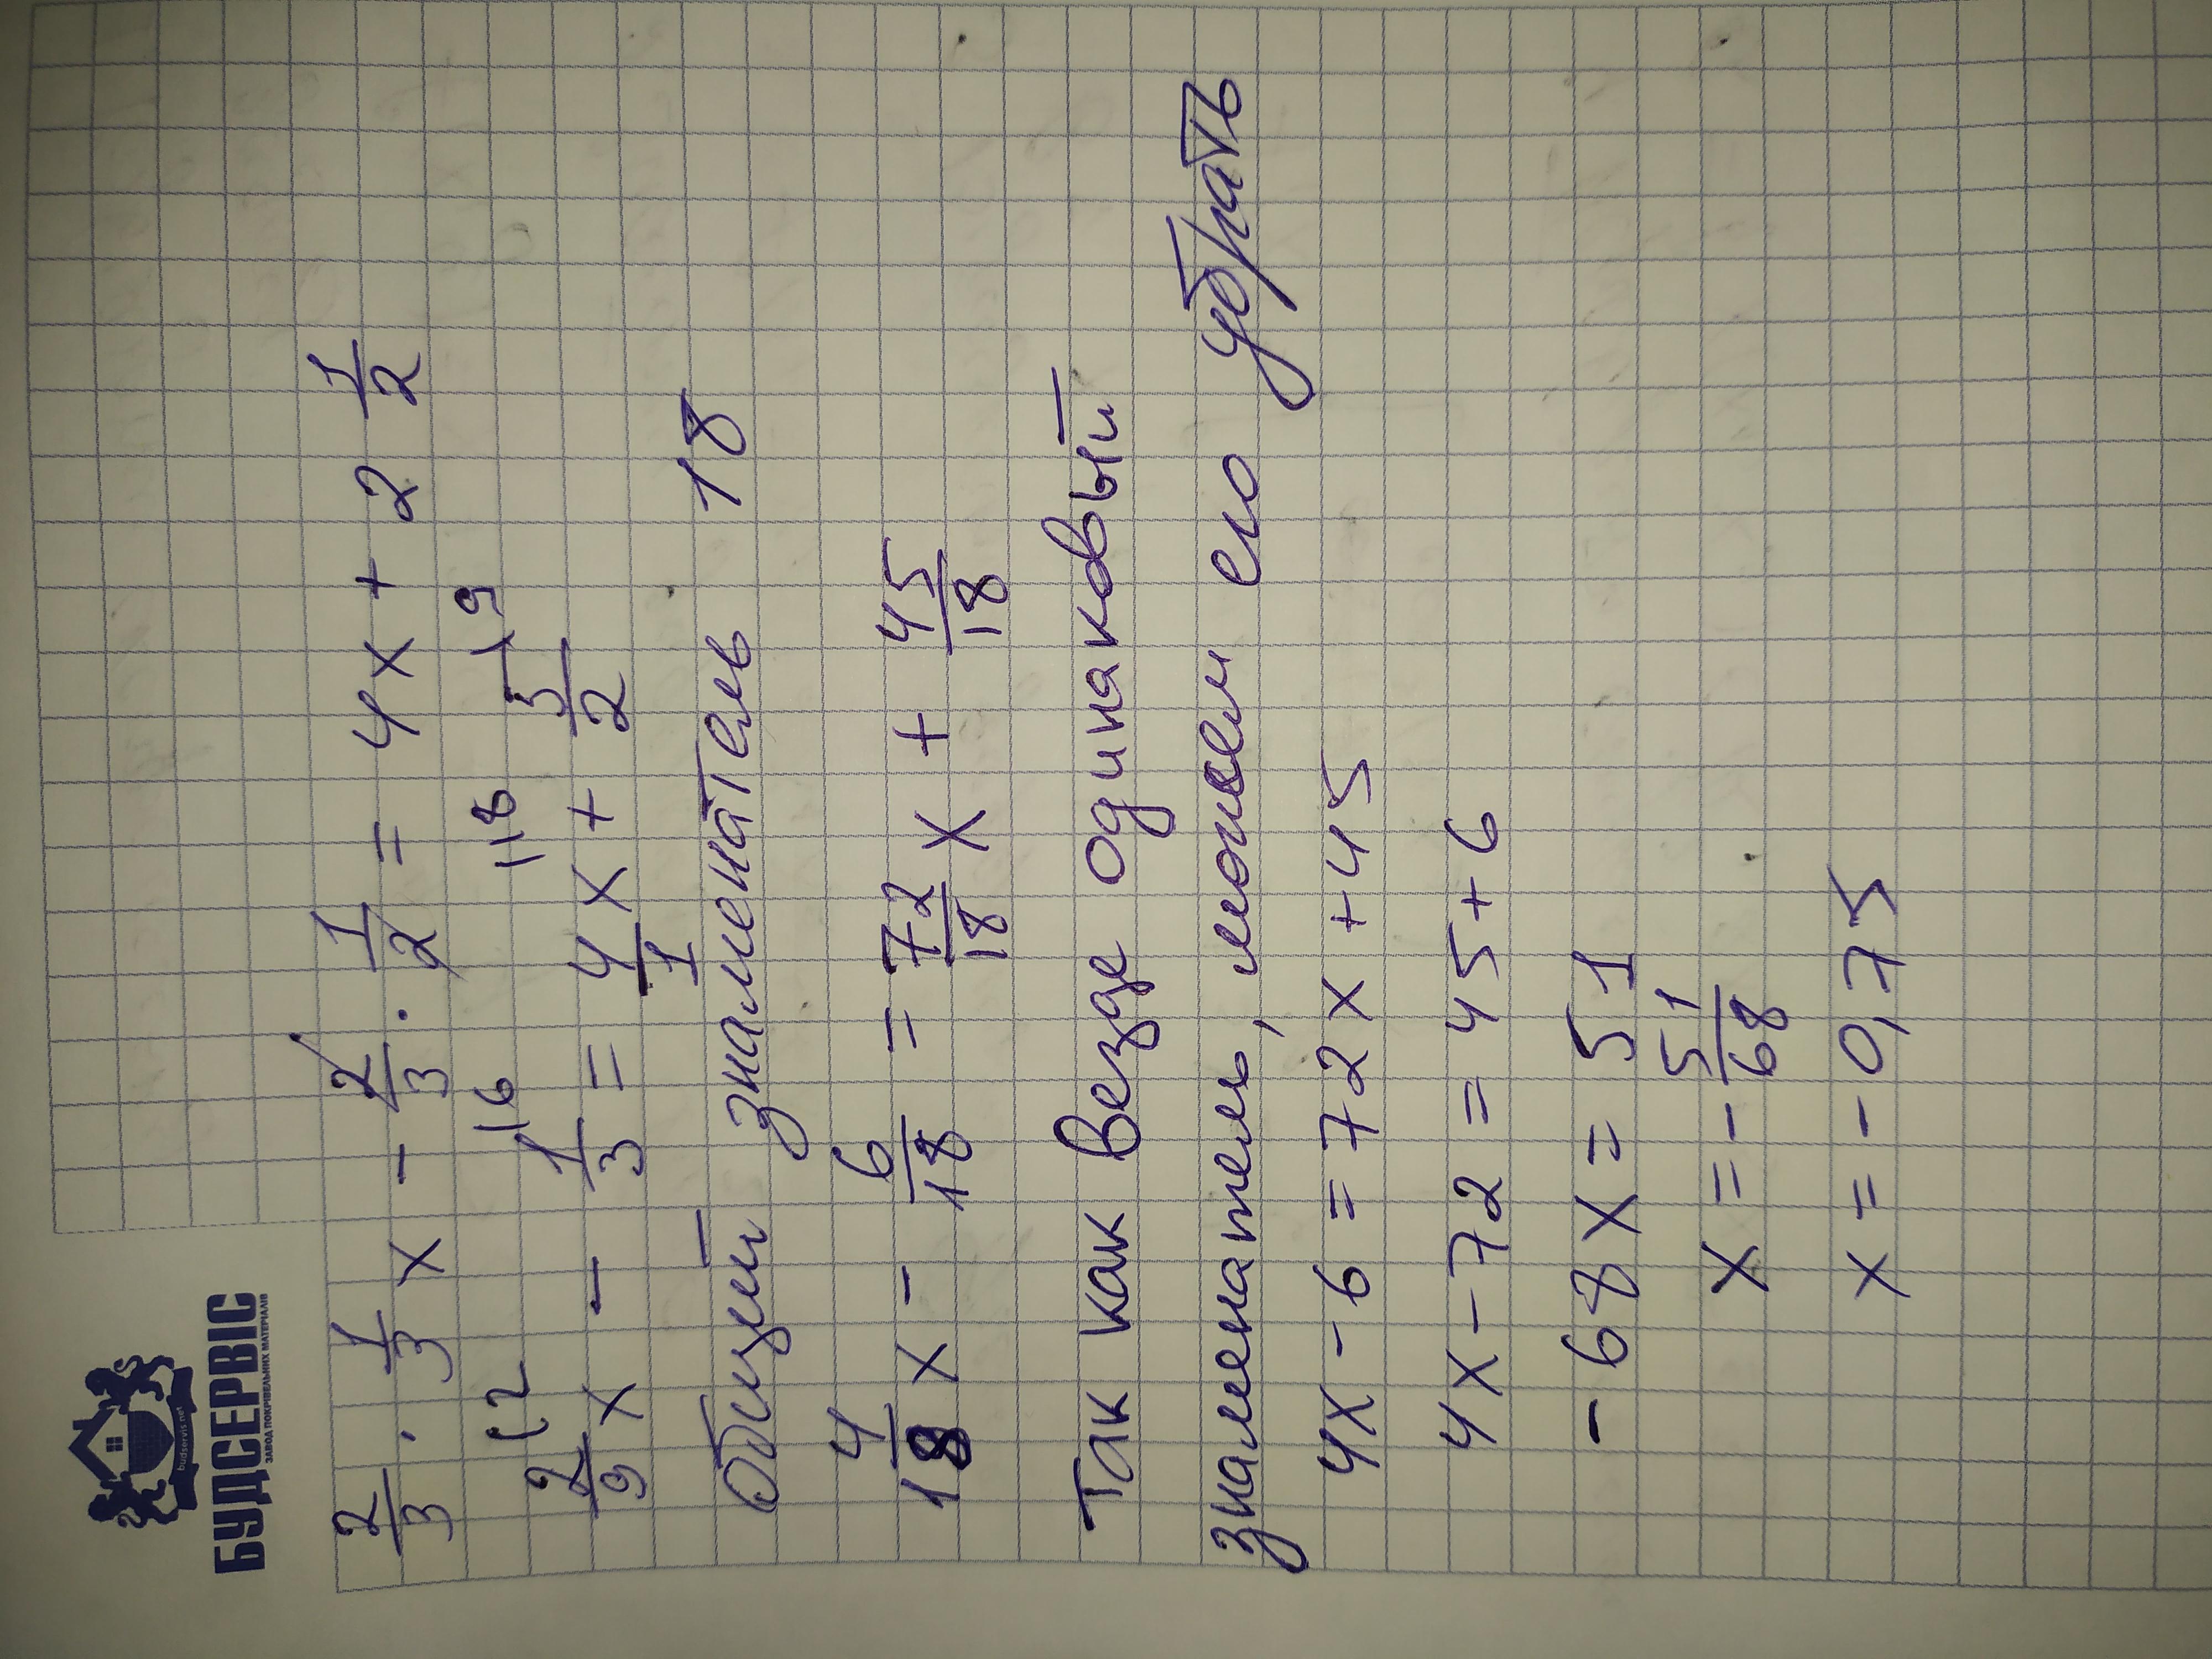 budservis.net
БУДСЕРВІС
ЗАВОД ПОКРІВЕЛЬНИХ МАТЕРІАЛІВ
2/3 · 1/3 x - 2/3 · 1/2 = 4x + 2 1/2
2/9 x - 1/3 = 4/1 x + 5/2
|2 |6 |18 |9
Общий знаменатель 18
4/18 x - 6/18 = 72/18 x + 45/18
Так как везде одинаковый
знаменатель, можем его убрать
4x - 6 = 72x + 45
4x - 72 = 45 + 6
- 68x = 51
x = - 51/68
x = - 0,75